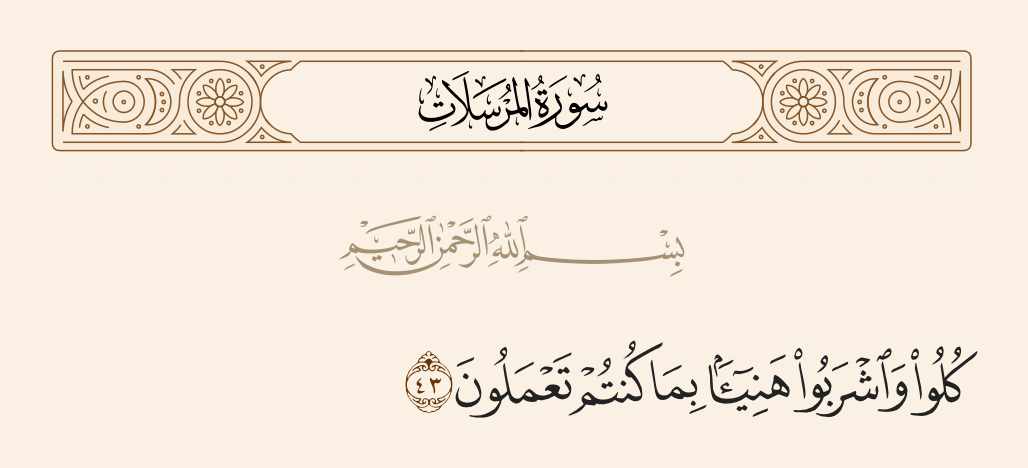 سُورَةُ المُرْسَلَاتِ
بِسْمِ ٱللَّهِ ٱلرَّحْمَٰنِ ٱلرَّحِيمِ
كُلُوا۟ وَٱشْرَبُوا۟ هَنِيٓـًٔۢا بِمَا كُنتُمْ تَعْمَلُونَ ٤٣